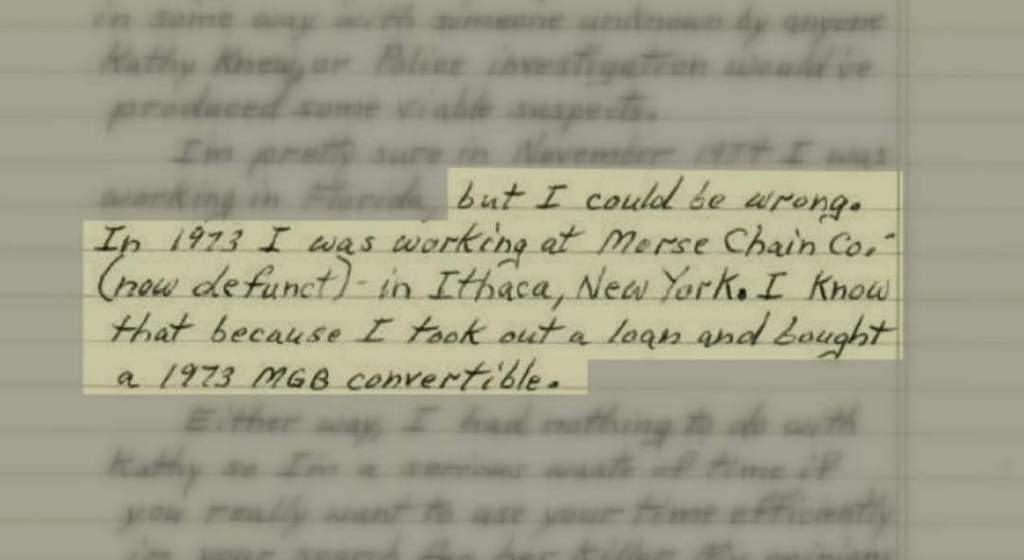 in some way with someone unknown by anyone
Kathy Knew, or Police investigation would've
produced some viable suspects.
I'm pretty sure in November 1974 I was
working in Florida, but I could be wrong.
In 1973 I was working at Morse Chain Co.-
(now defunct)- in Ithaca, New York. I Know
that because I took out a loan and bought
a 1973 MGB convertible.
Either way, I had nothing to do with
Kathy so I'm a serious waste of time if
you really want to use your time efficiently
in your search for her killer. My opinion